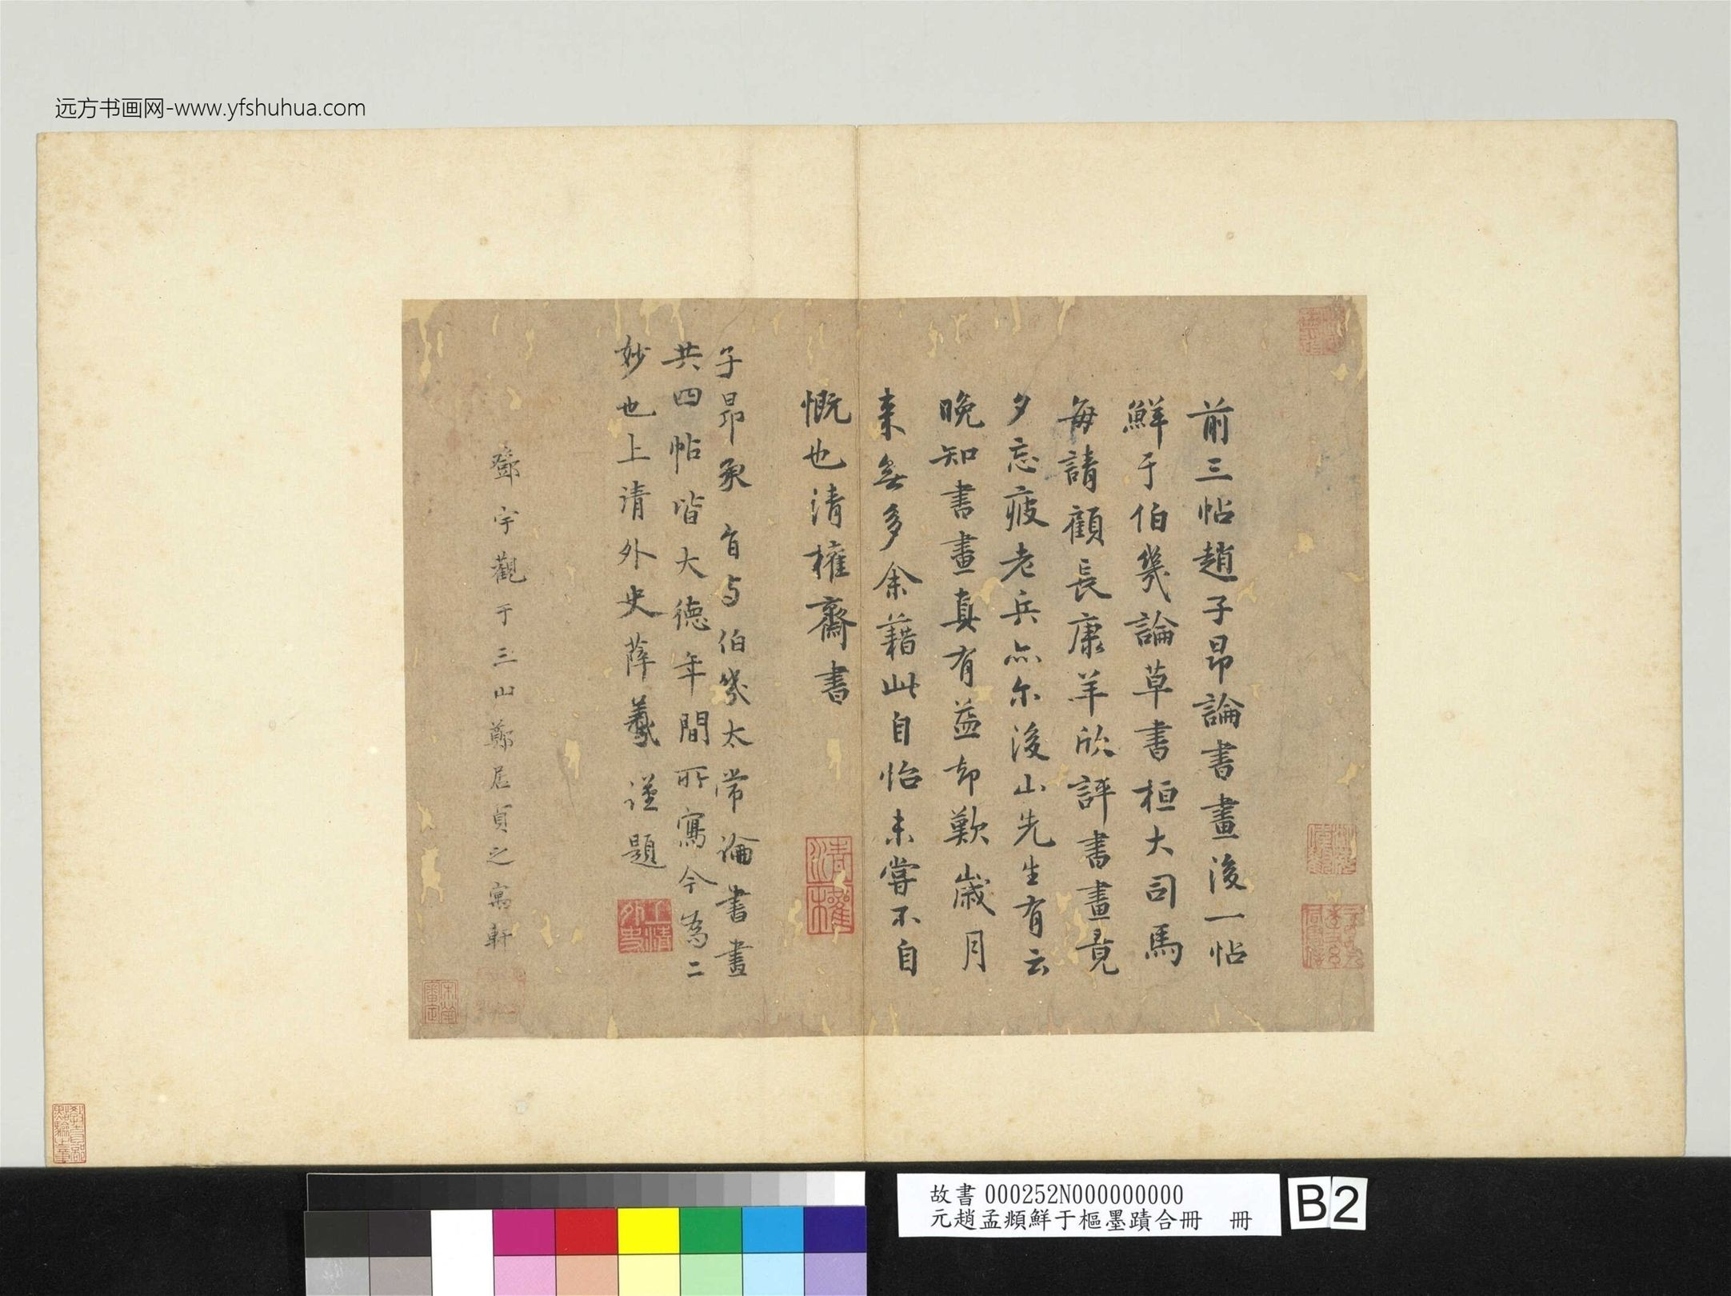 远方书画网-www.yfshuhua.com
前三帖趙子昂論書畫後一帖
鮮于伯幾論草書桓大司馬
每請顧長康羊欣評書畫竟
夕忘疲老兵亦尔後山先生有云
晚知書畫真有益却歎歲月
来無多余藉此自怡未嘗不自
慨也清權齋書
清權
子昂承旨与伯幾太常論書畫
共四帖皆大德年間所寫今為二
妙也上清外史薛羲謹題
上清外史
鄧宇觀于三山鄭居貞之寓軒
故書 000252N000000000
元趙孟頫鮮于樞墨蹟合冊 冊
B2